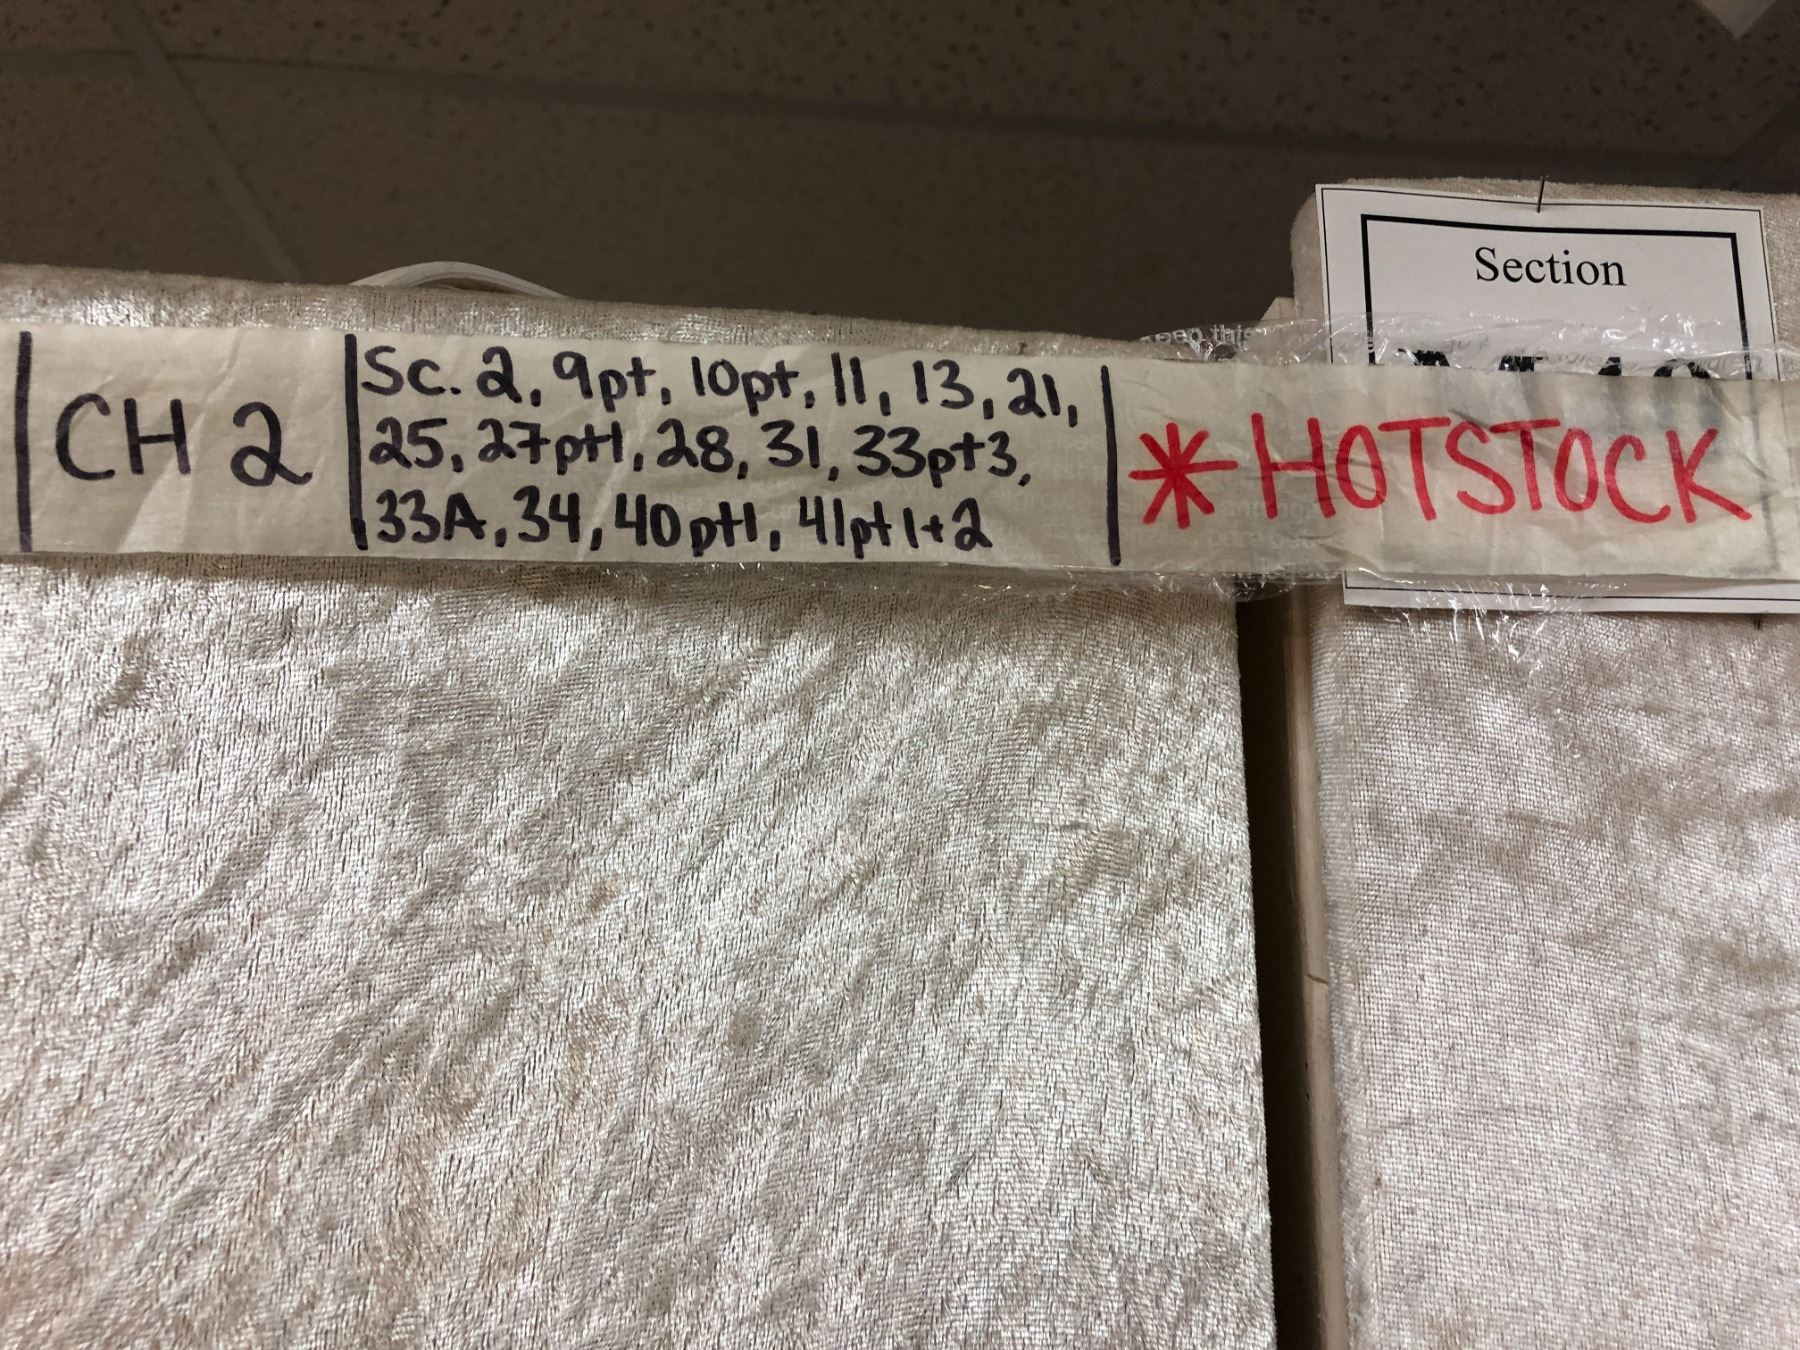 Section
CH 2
Sc. 2, 9pt, 10pt, 11, 13, 21,
25, 27pt1, 28, 31, 33pt3,
33A, 34, 40pt1, 41pt1+2
* HOTSTOCK